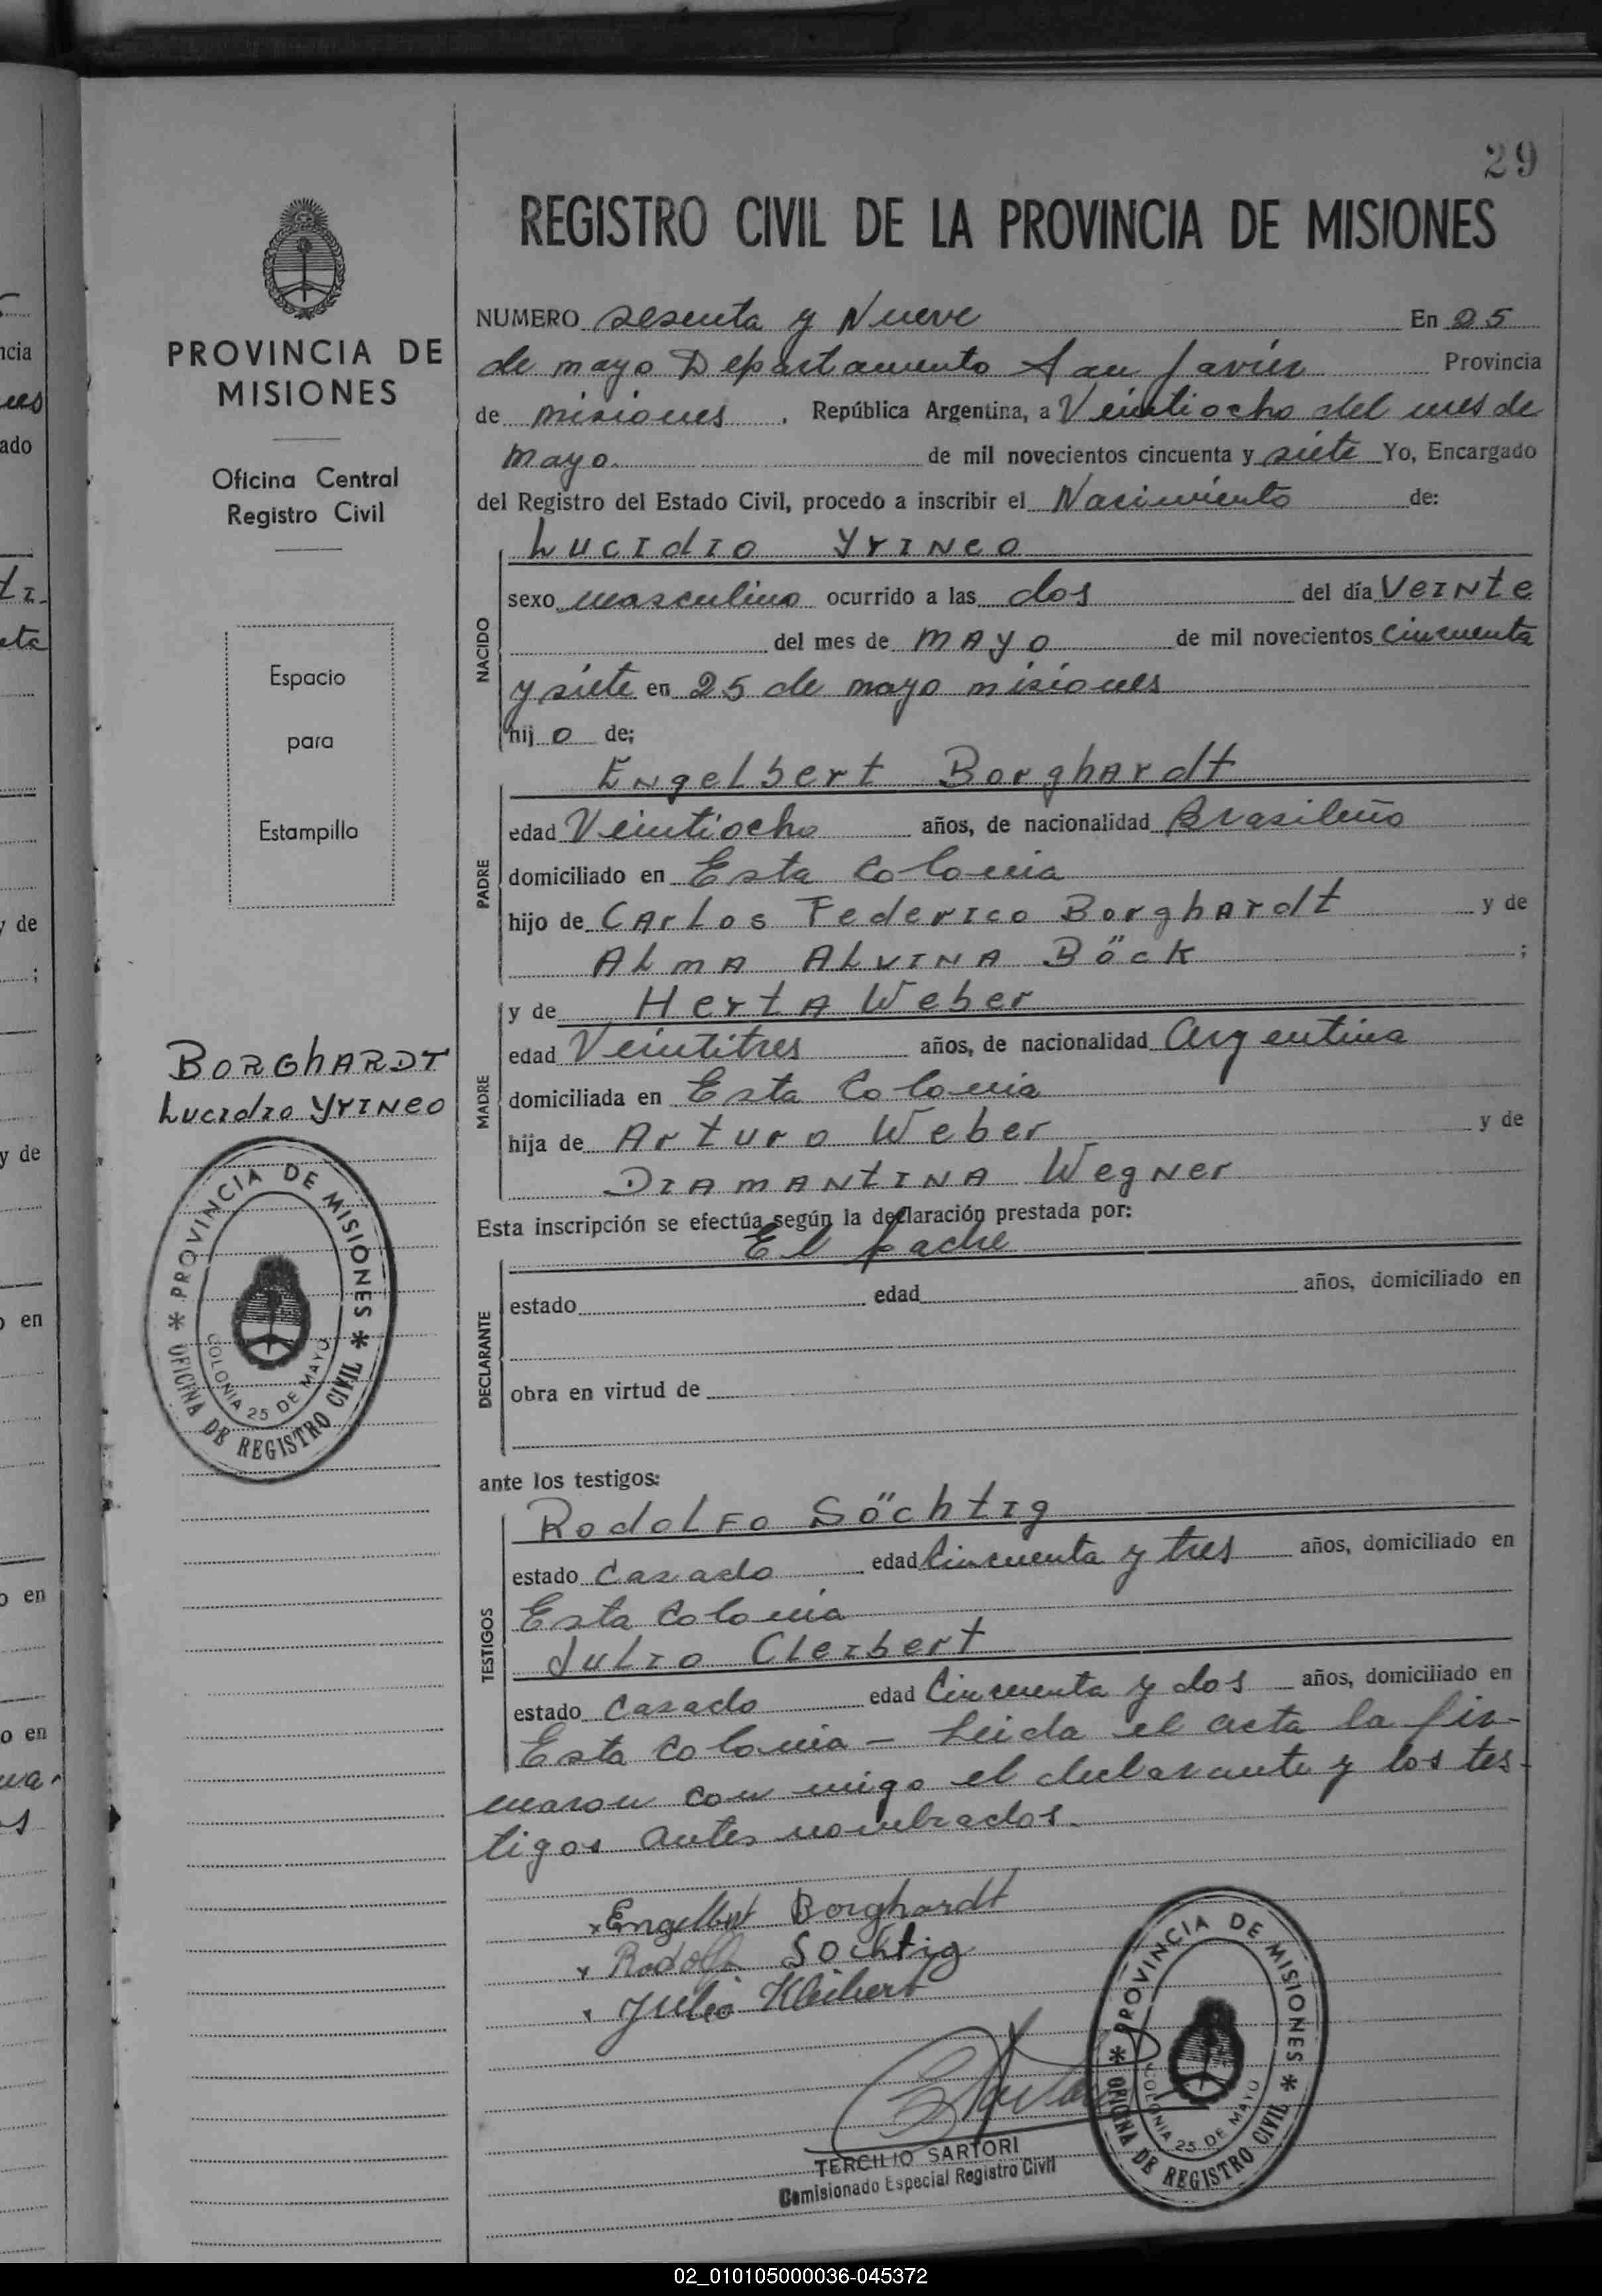 29
REGISTRO CIVIL DE LA PROVINCIA DE MISIONES
PROVINCIA DE
MISIONES
Oficina Central
Registro Civil
Espacio
para
Estampilla
BORGhARDT
Lucidio Yrineo
PROVINCIA DE MISIONES
COLONIA 25 DE MAYO
OFICINA DE REGISTRO CIVIL
NUMERO sesenta y Nueve En 25
de mayo Departamento San Javier Provincia
de misiones. República Argentina, a Veintiocho del mes de
mayo de mil novecientos cincuenta y siete Yo, Encargado
del Registro del Estado Civil, procedo a inscribir el Nacimiento de:
NACIDO
Lucidio Yrineo
sexo masculino ocurrido a las dos del día Veinte
del mes de mayo de mil novecientos cincuenta
y siete en 25 de mayo misiones
hijo de;
PADRE
Engelbert Borghardt
edad Veintiocho años, de nacionalidad Brasileño
domiciliado en Esta Colonia
hijo de Carlos Federico Borghardt y de
Alma Alvina Böck ;
MADRE
y de Herta Weber
edad Veintitres años, de nacionalidad Argentina
domiciliada en Esta Colonia
hija de Arturo Weber y de
Diamantina Wegner
Esta inscripción se efectúa según la declaración prestada por:
El padre
DECLARANTE
estado edad años, domiciliado en
obra en virtud de
ante los testigos:
TESTIGOS
Rodolfo Söchtig
estado Casado edad Cincuenta y tres años, domiciliado en
Esta Colonia
Julio Cleibert
estado Casado edad Cincuenta y dos años, domiciliado en
Esta Colonia – Leida el acta la fir-
maron con migo el declarante y los tes-
tigos antes nombrados.
x Engelbert Borghardt
x Rodolfo Sochtig
x Julio Kleibert
TERCILIO SARTORI
Comisionado Especial Registro Civil
PROVINCIA DE MISIONES
COLONIA 25 DE MAYO
OFICINA DE REGISTRO CIVIL
02_010105000036-045372